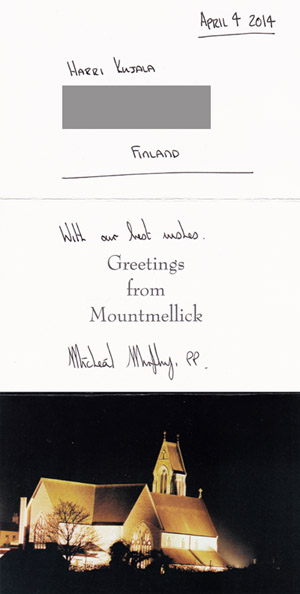 APRIL 4 2014
HARRI KUJALA
FINLAND
With our best wishes.
Greetings
from
Mountmellick
Mícheál Murphy, PP.